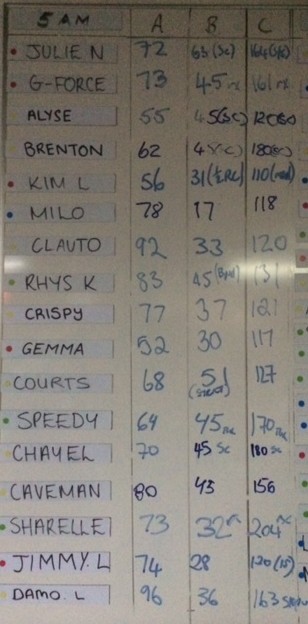 5 AM A B C
JULIE N 72 63 (Sc)
G-FORCE 73 45 rx 161 rx
ALYSE 55 45(sc) 120(sc)
BRENTON 62 180(sc)
KIM L 56 110(mod)
MILO 78 17 118
CLAUTO 92 33 120
RHYS K 83 45 131
CRISPY 77 37 121
GEMMA 52 30 117
COURTS 68 51 127
SPEEDY 64 45 170
CHAYEL 70 45 sc 180 sc
CAVEMAN 80 43 156
SHARELLE 73 32 204
JIMMY. L 74 28 120
DAMO. L 96 36 163